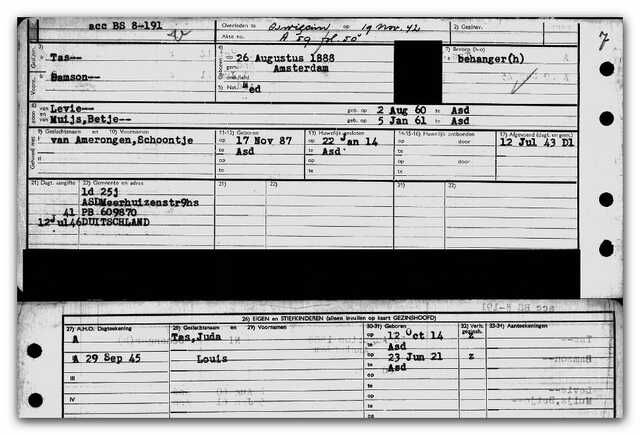 acc BS 8-191
Overleden te op 19 Nov. 42 2) Gezinsv.
Akte no. A 59 fol. 50 7
Tas--
Samson--
26 Augustus 1888
Amsterdam
5) Nat. Ned
7) Beroep (h-o)
behanger(h)
Levie-- geb. op 2 Aug 60 te Asd
en van Muijs,Betje-- geb. op 5 Jan 61 te Asd
9) Geslachtsnaam en 10) Voornamen 11-12) Geboren 13) Huwelijk gesloten 14-15-16) Huwelijk ontbonden 17) Afgevoerd (dagt. en gem.)
van Amerongen,Schoontje op 17 Nov 87 op 22 Jan 14 12 Jul 43 Dl
te Asd te Asd
21) Dagt. aangifte 22) Gemeente en adres
ld 25j
ASDMeerhuizenstr9hs
41 PB 609870
12Jul46DUITSCHLAND
26) EIGEN en STIEFKINDEREN (alleen invullen op kaart GEZINSHOOFD)
27) A.H.O. Dagteekening 28) Geslachtsnaam en 29) Voornamen 30-31) Geboren 32) Verh. gezinsh. 33-34) Aanteekeningen
A Tas,Juda op 12 Oct 14 z
te Asd
A 29 Sep 45 Louis op 23 Jun 21 z
te Asd
III op
te
IV op